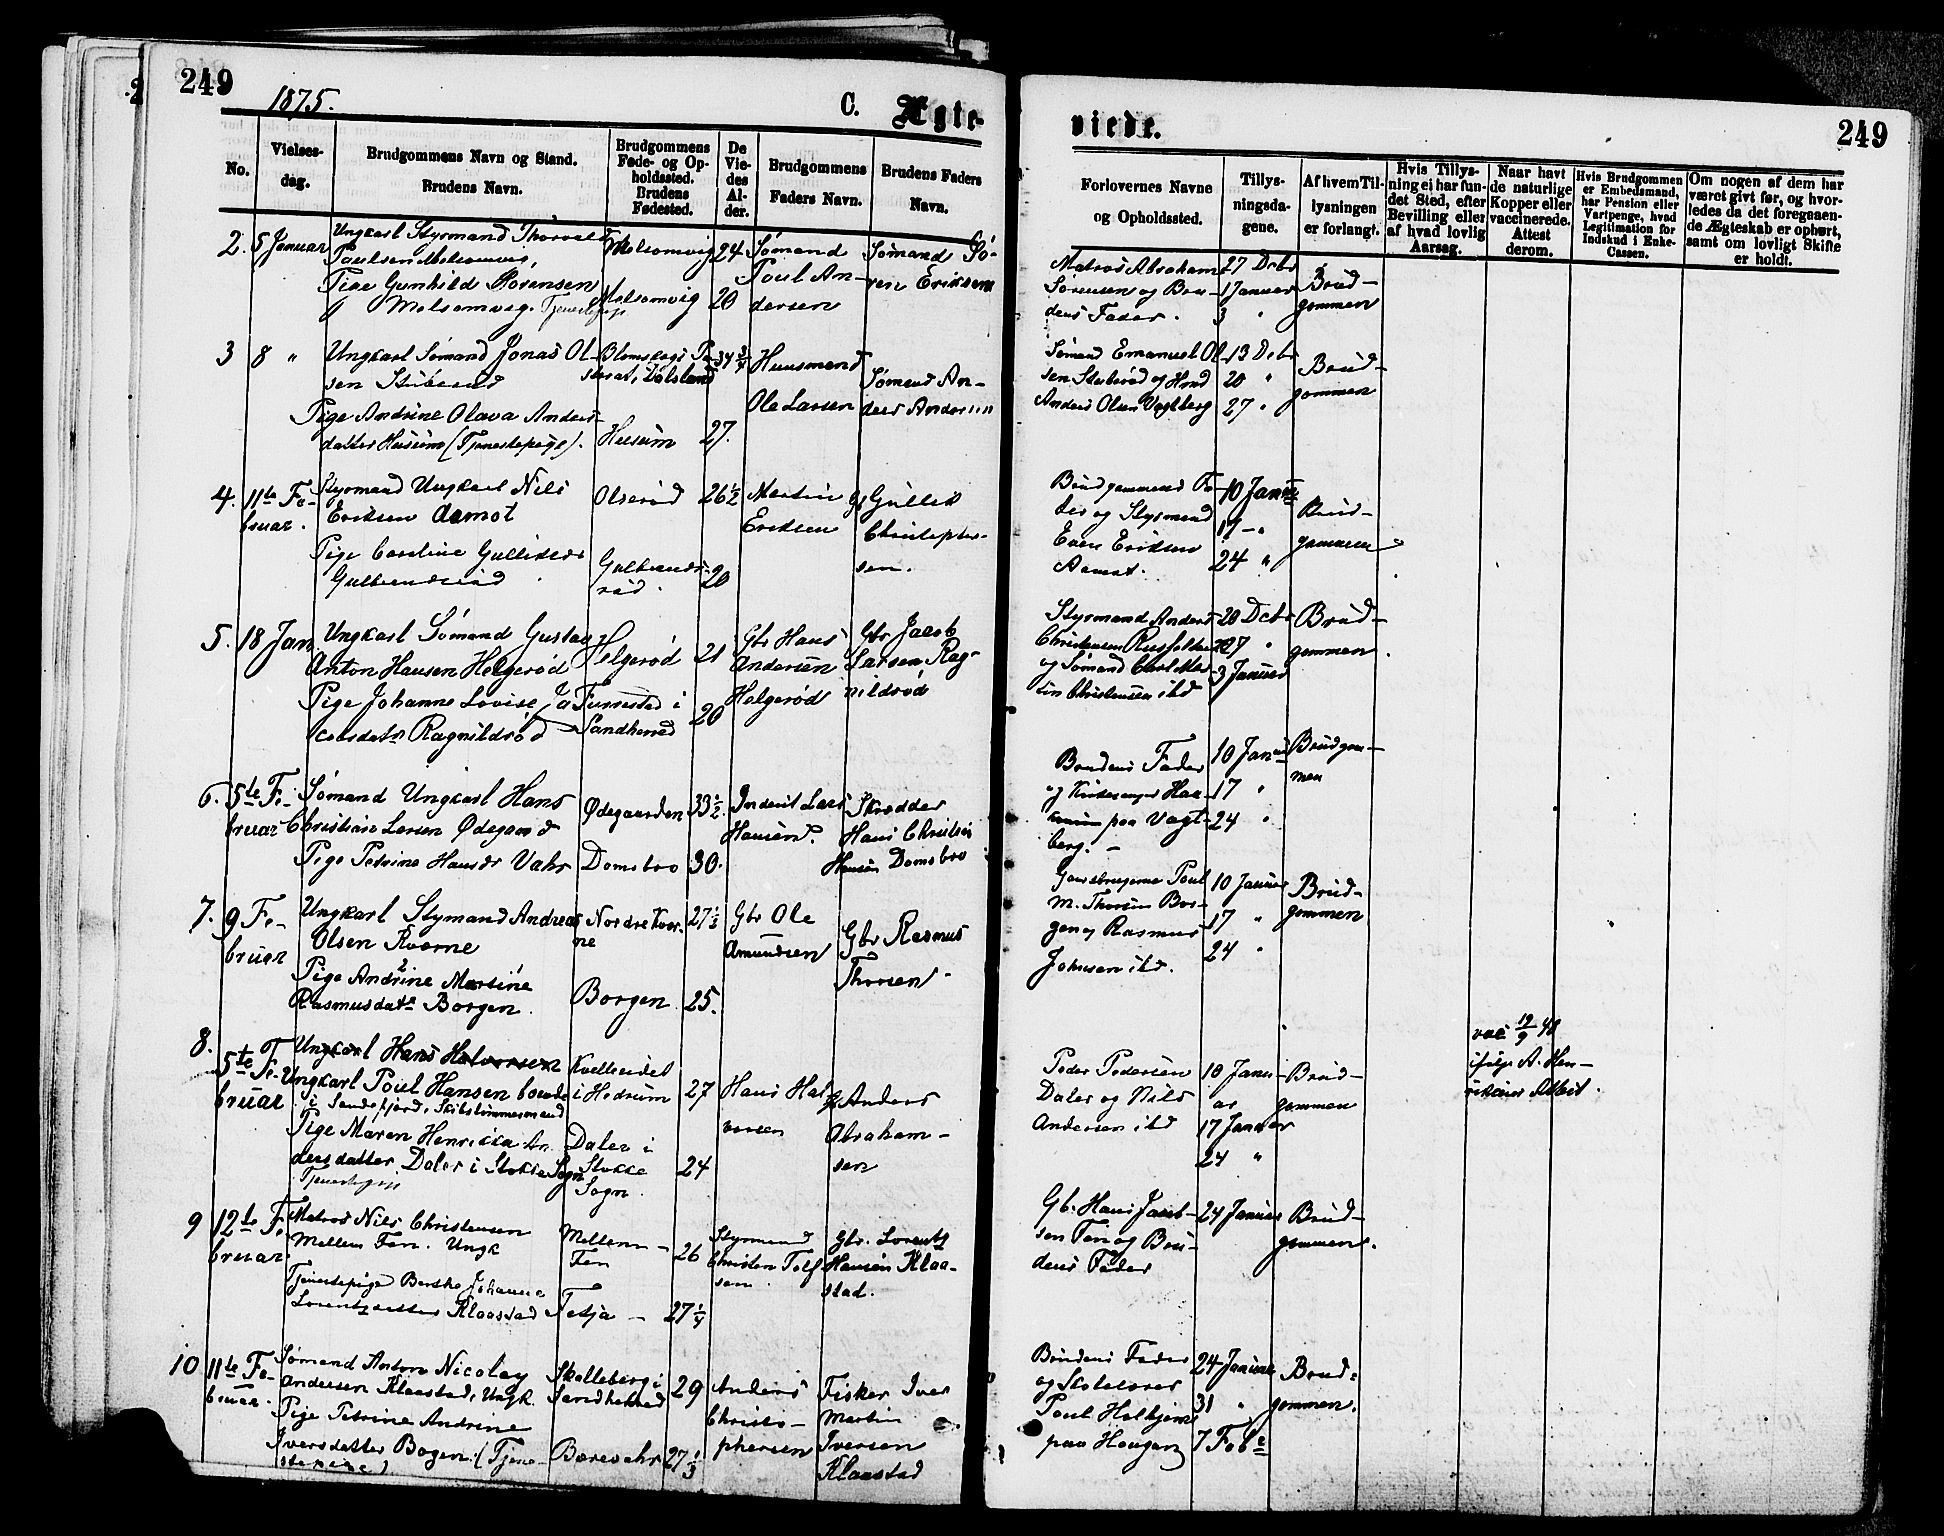 249
1875.
C. Ægte-
viede.
249
No.
Vielses-
dag.
Brudgommens Navn og Stand.
Brudens Navn.
Brudgommens
Føde- og Op-
holdssted.
Brudens
Fødested.
De
Vie-
des
Al-
der.
Brudgommens
Faders Navn.
Brudens Faders
Navn.
Forlovernes Navne
og Opholdssted.
Tillys-
ningsda-
gene.
Af hvem Til-
lysningen
er forlangt.
Hvis Tillys-
ning ei har fun-
det Sted, efter
Bevilling eller
af hvad lovlig
Aarsag.
Naar havt
de naturlige
Kopper eller
vaccinerede.
Attest
derom.
Hvis Brudgommen
er Embedsmand,
har Pension eller
Vartpenge, hvad
Legitimation for
Indskud i Enke-
Cassen.
Om nogen af dem har
været givt før, og hvor-
ledes da det foregaaen-
de Ægteskab er ophørt,
samt om lovligt Skifte
er holdt.
2.
5 Januar
Ungkarl Styrmand Thorvald
Paulsen Melsomvig,
Pige Gunhild Sørensen
Melsomvig. Tjenestepige
Melsomvig
Melsomvig
24
20
Sømand
Poul An-
dersen
Sømand Sö-
ren Eriksen
Matros Abraham
Sørensen og Bru-
dens Fader.
27 Decbr
1 Januar
3 "
Brud-
gommen
3
8 "
Ungkarl Sømand Jonas Ol-
sen Stuberød
Pige Andrine Olava Anders-
datter Husum (Tjenestepige).
Blomskogs Pa-
storat, Dalsland
Husum
34 3/4
27.
Huusmand
Ole Larsen
Sømand An-
ders Andersen
Sømand Emanuel Ol-
sen Stuberød og
Anders Olsen Vagtberg
13 Decbr
20 "
27 "
Brud-
gommen
4.
11te Fe-
bruar.
Styrmand Ungkarl Nils
Eriksen Aamot
Pige Caroline Gulliksdr
Gulbrandsrød
Olserød
Gulbrands-
rød.
26 1/2
20
Martin
Eriksen
Gullik
Christophers-
sen.
Brudgommens Fa-
der og Styrmand
Even Eriksen
Aamot.
10 Januar
17 - "
24 "
Brud-
gommen
5.
18 Jan
Ungkarl Sømand Gustav
Anton Hansen Helgerød
Pige Johanne Lovise Ja-
cobsdatr Ragnildrød
Helgerød
Furrestad i
Sandherred
21
20
Gbr Hans
Andersen
Helgerød
Gbr Jacob
Larsen Rag-
nildrød
Styrmand Anders
Christensen
og Sømand Carl Mar-
tin Christensen ibd
20 Decbr
27 "
3 Januar
Brud-
gommen.
6.
5te Fe-
bruar
Sømand Ungkarl Hans
Christian Larsen Ødegaard
Pige Petrine Hansdr Vahr
Ødegaarden
Domsbro
33 1/2
30.
Inderst Lars
Hansen
Skrædder
Hans Christian
Hansen Domsbro
Brudens Fader
og Kirkesanger Haa-
paa Vagt-
berg. -
10 Januar
17 "
24 "
Brudgom-
men
7.
9 Fe-
bruar
Ungkarl Styrmand Andreas
Olsen Kværne
Pige Andrine Martine
Rasmusdatr Borgen.
Nordre Kvær-
ne
Borgen
27 1/2
25.
Gbr Ole
Amundsen
Gbr Rasmus
Thorsen
Gaardbrugerne Poul
M. Thorsen Bor-
gen og Rasmus
Johnsen ibd.
10 Januar
17 "
24 "
Brud-
gommen
8.
5te Fe-
bruar
Ungkarl Hans Halvorsen
Ungkarl Poul Hansen boende
i Sandefjord, Skibstømmermand
Pige Maren Henrikka An-
dersdatter Daler i Stokke Sogn
Tjenestepige
i Hedrum
Daler i
Stokke
Sogn.
27
24
Hans Hal-
vorsen
Anders
Abraham-
sen
Peder Pedersen
Daler og Nils
Andersen ibd
10 Janu-
ar
17 Januar
24 "
Brud-
gommen
vac 19/9 48
ifølge A. Hen-
riksens Attest.
9
12te Fe-
bruar
Matros Nils Christensen
Mellem Fen. Ungk
Tjenestepige Berthe Johanne
Lorentzdatter Klaastad
Mellem-
Fen
Fetja -
26
27 1/4
Styrmand
Christen Tolf-
sen
Gbr. Lorentz
Hansen Klaa-
stad.
Gb. Hans Jacob-
sen Fen og Bru-
dens Fader
24 Januar
Brud-
gommen.
10
11te Fe-
bruar.
Sømand Anton Nicolay
Andersen Klaastad, Ungk.
Pige Petrine Andrine
Iversdatter Bogen. (Tjene-
stepige)
Skalleberg i
Sandeherred
Baresvahr
29
27 1/3
Anders
Christo-
phersen
Fisker Iver
Martin
Iversen
Klaastad
Brudens Fader
og Skolelærer
Poul Holtjem
paa Haugan
24 Januar
31 "
7 Febr
Brud-
gommen.